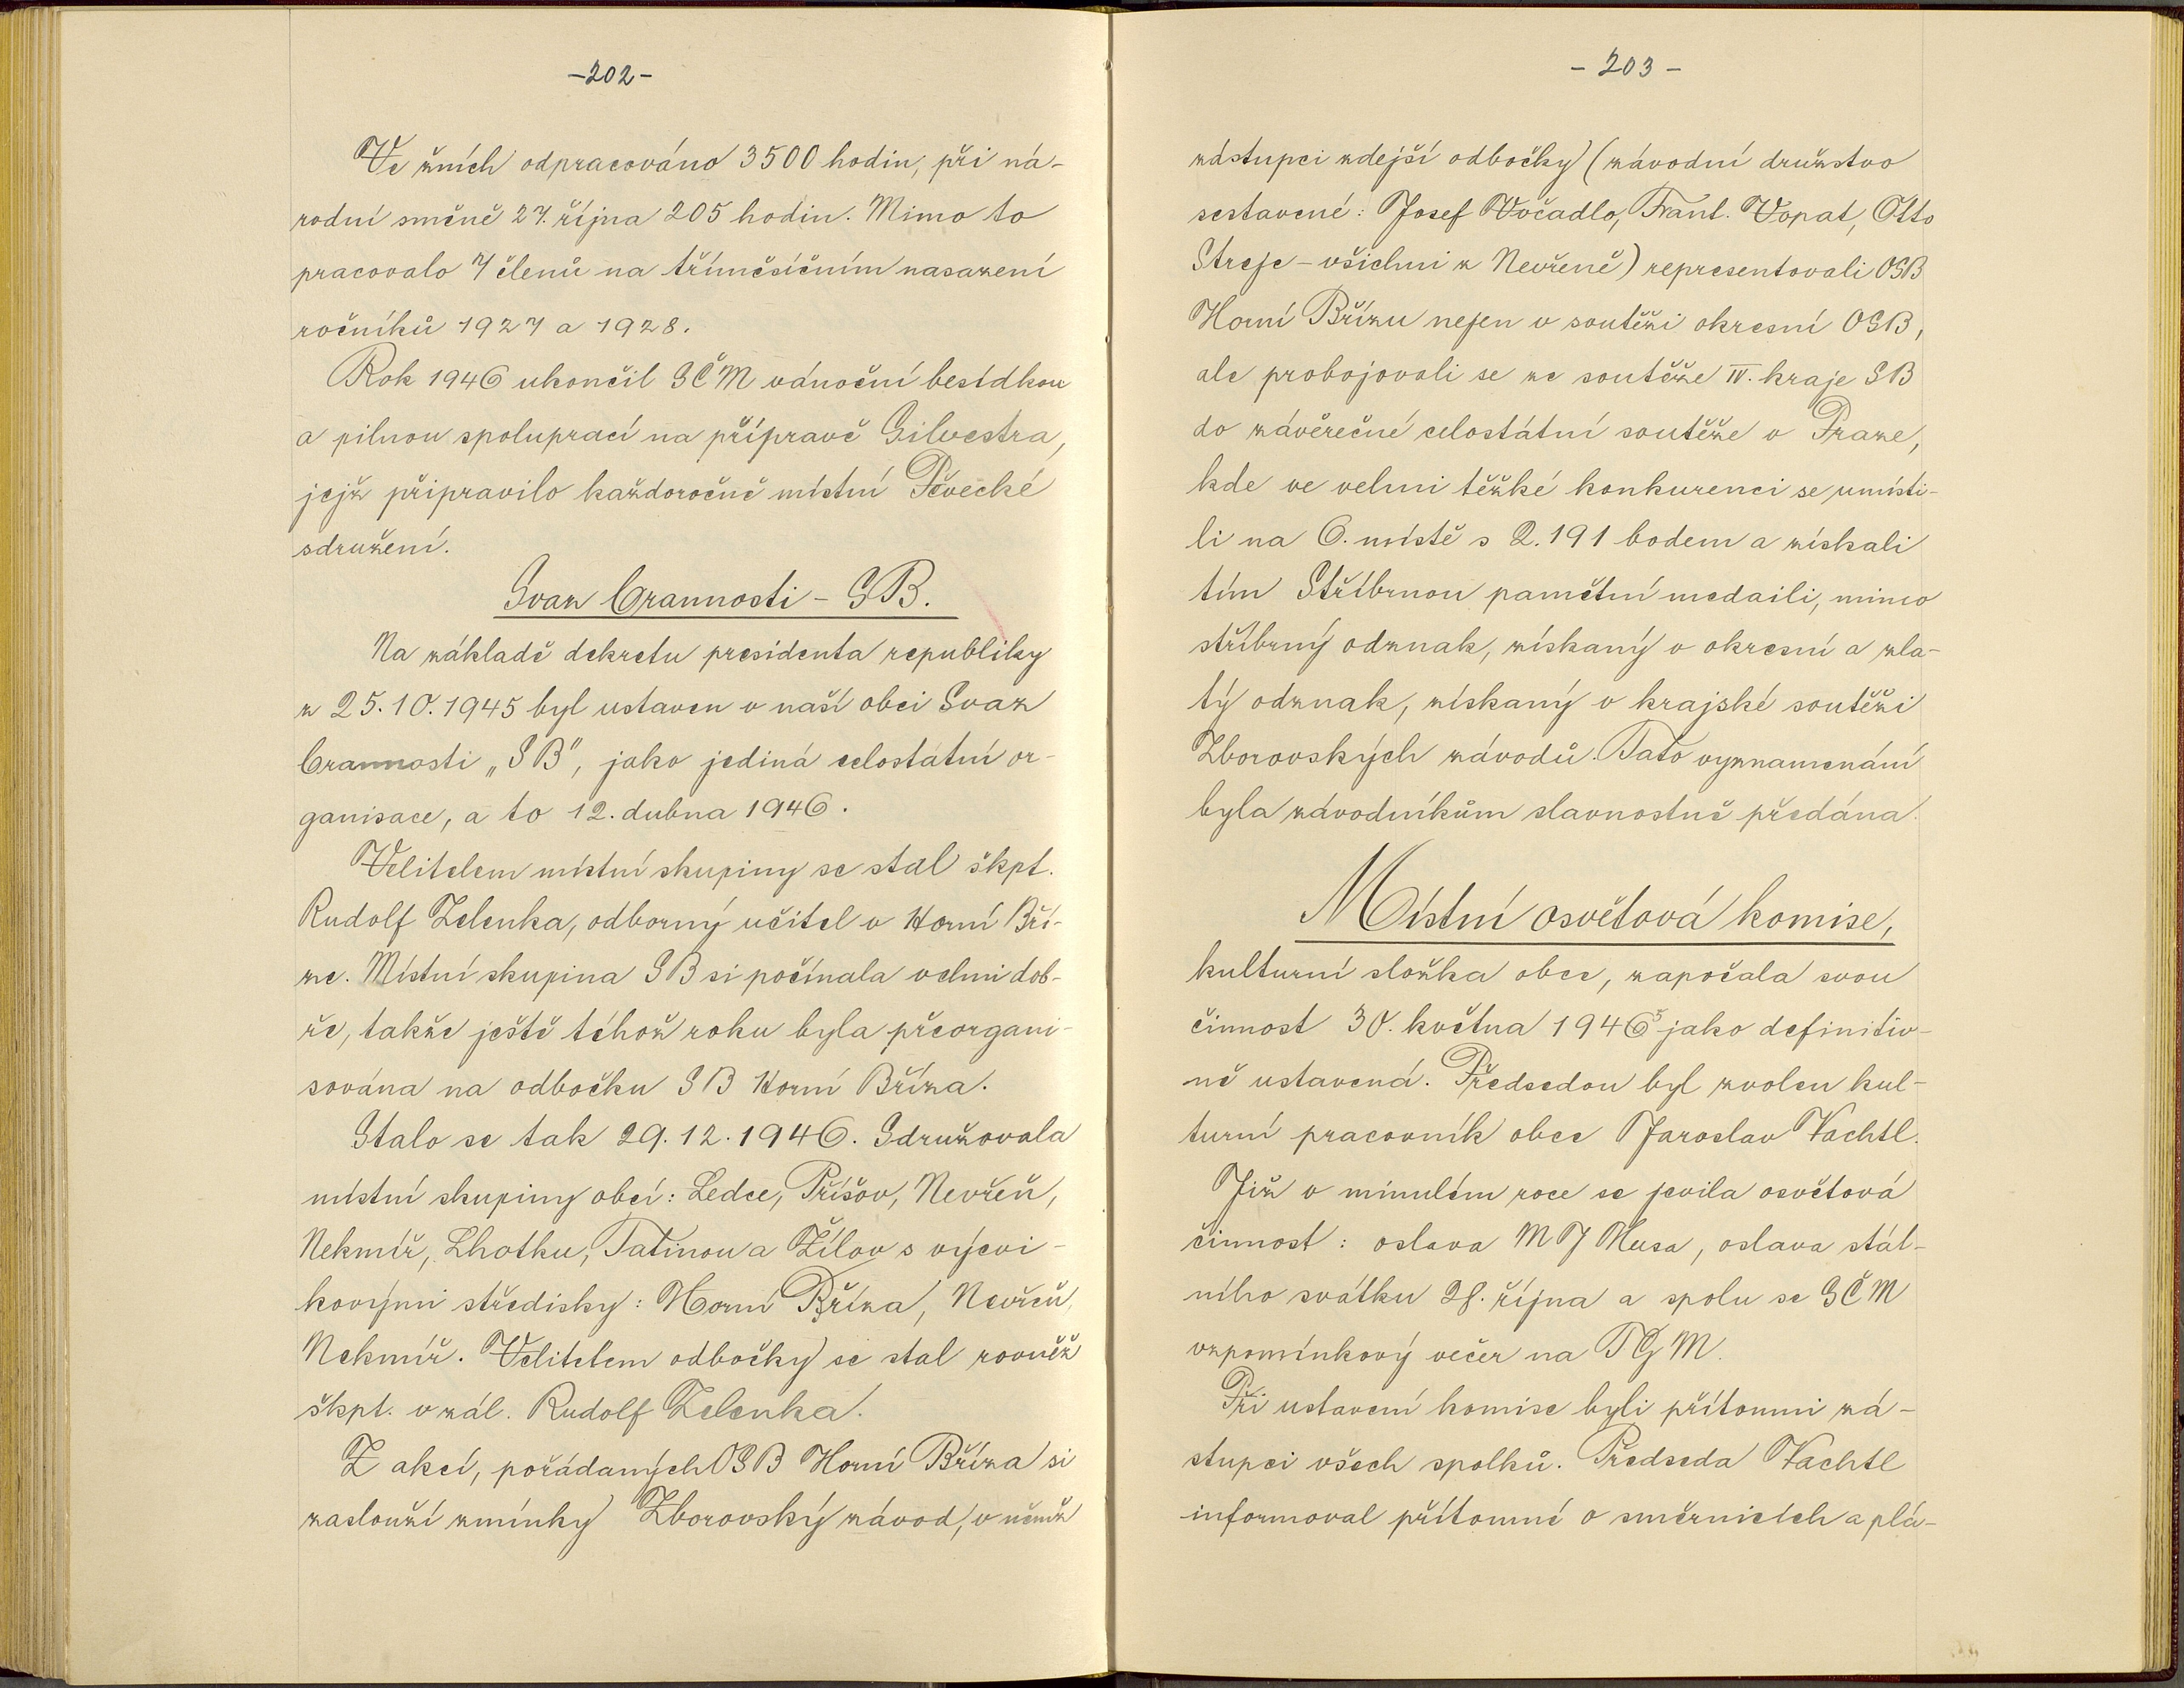 -202-
Ve žních odpracováno 3500 hodin, při ná-
rodní směně 27. října 205 hodin. Mimo to
pracovalo 7 členů na tříměsíčním nasazení
ročníků 1927 a 1928.
Rok 1946 ukončil SČM vánoční besídkou
a pilnou spoluprací na přípravě Silvestra,
jejž připravilo každoročně místní Pěvecké
sdružení.
Svaz Brannosti - SB.
Na základě dekretu presidenta republiky
z 25.10.1945 byl ustaven v naší obci Svaz
Brannosti „SB", jako jediná celostátní or-
ganisace, a to 12. dubna 1946.
Velitelem místní skupiny se stal škpt.
Rudolf Zelenka, odborný učitel v Horní Bří-
ze. Místní skupina SB si počínala velmi dob-
ře, takže ještě téhož roku byla přeorgani-
sována na odbočku SB Horní Bříza.
Stalo se tak 29.12.1946. Sdružovala
místní skupiny obcí: Ledce, Příšov, Nevřeň,
Nekmíř, Lhotku, Tatinou a Žílov s výcvi-
kovými středisky: Horní Bříza, Nevřeň,
Nekmíř. Velitelem odbočky se stal rovněž
škpt. v zál. Rudolf Zelenka.
Z akcí, pořádaných OSB Horní Bříza si
zaslouží zmínky Zborovský závod, v němž
- 203 -
zástupci zdejší odbočky (závodní družstvo
sestavené: Josef Vočadlo, Frant. Vopat, Otto
Streje - všichni z Nevřeně) representovali OSB
Horní Břízu nejen v soutěži okresní OSB,
ale probojovali se ze soutěže IV. kraje SB
do závěrečné celostátní soutěže v Praze,
kde ve velmi těžké konkurenci se umísti-
li na 6. místě s 2.191 bodem a získali
tím Stříbrnou pamětní medaili, mimo
stříbrný odznak, získaný v okresní a zla-
tý odznak, získaný v krajské soutěži
Zborovských závodů. Tato vyznamenání
byla závodníkům slavnostně předána.
Místní osvětová komise,
kulturní složka obce, započala svou
činnost 30. května 1946 jako definitiv-
ně ustavená. Předsedou byl zvolen kul-
turní pracovník obce Jaroslav Vachtl.
Již v minulém roce se jevila osvětová
činnost: oslava M J Husa, oslava stát-
ního svátku 28. října a spolu se SČM
vzpomínkový večer na TGM.
Při ustavení komise byli přítomni zá-
stupci všech spolků. Předseda Vachtl
informoval přítomné o směrnicích a plá-